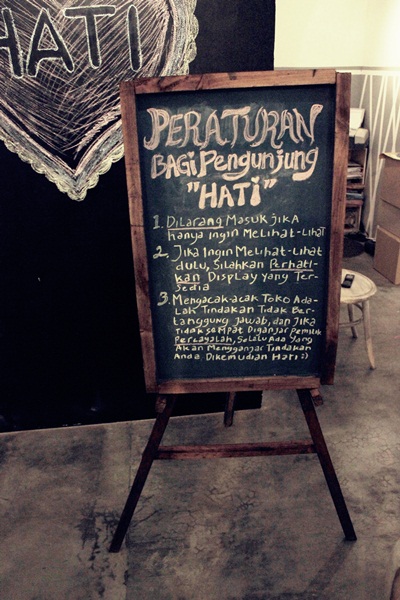 HATI
PERATURAN
BAGI Pengunjung
"HATI"
1. DiLarang Masuk jika
hanya ingin Melihat-Lihat
2. Jika Ingin Melihat-Lihat
dulu, Silahkan Perhati-
kan Display yang Ter-
sedia
3. Mengacak-acak Toko Ada-
Lah Tindakan Tidak Ber-
tanggung Jawab, dan Jika
Tidak sempat Diganjar Pemilik
Percayalah, Selalu Ada yang
Akan Mengganjar Tindakan
Anda Dikemudian Hari :)